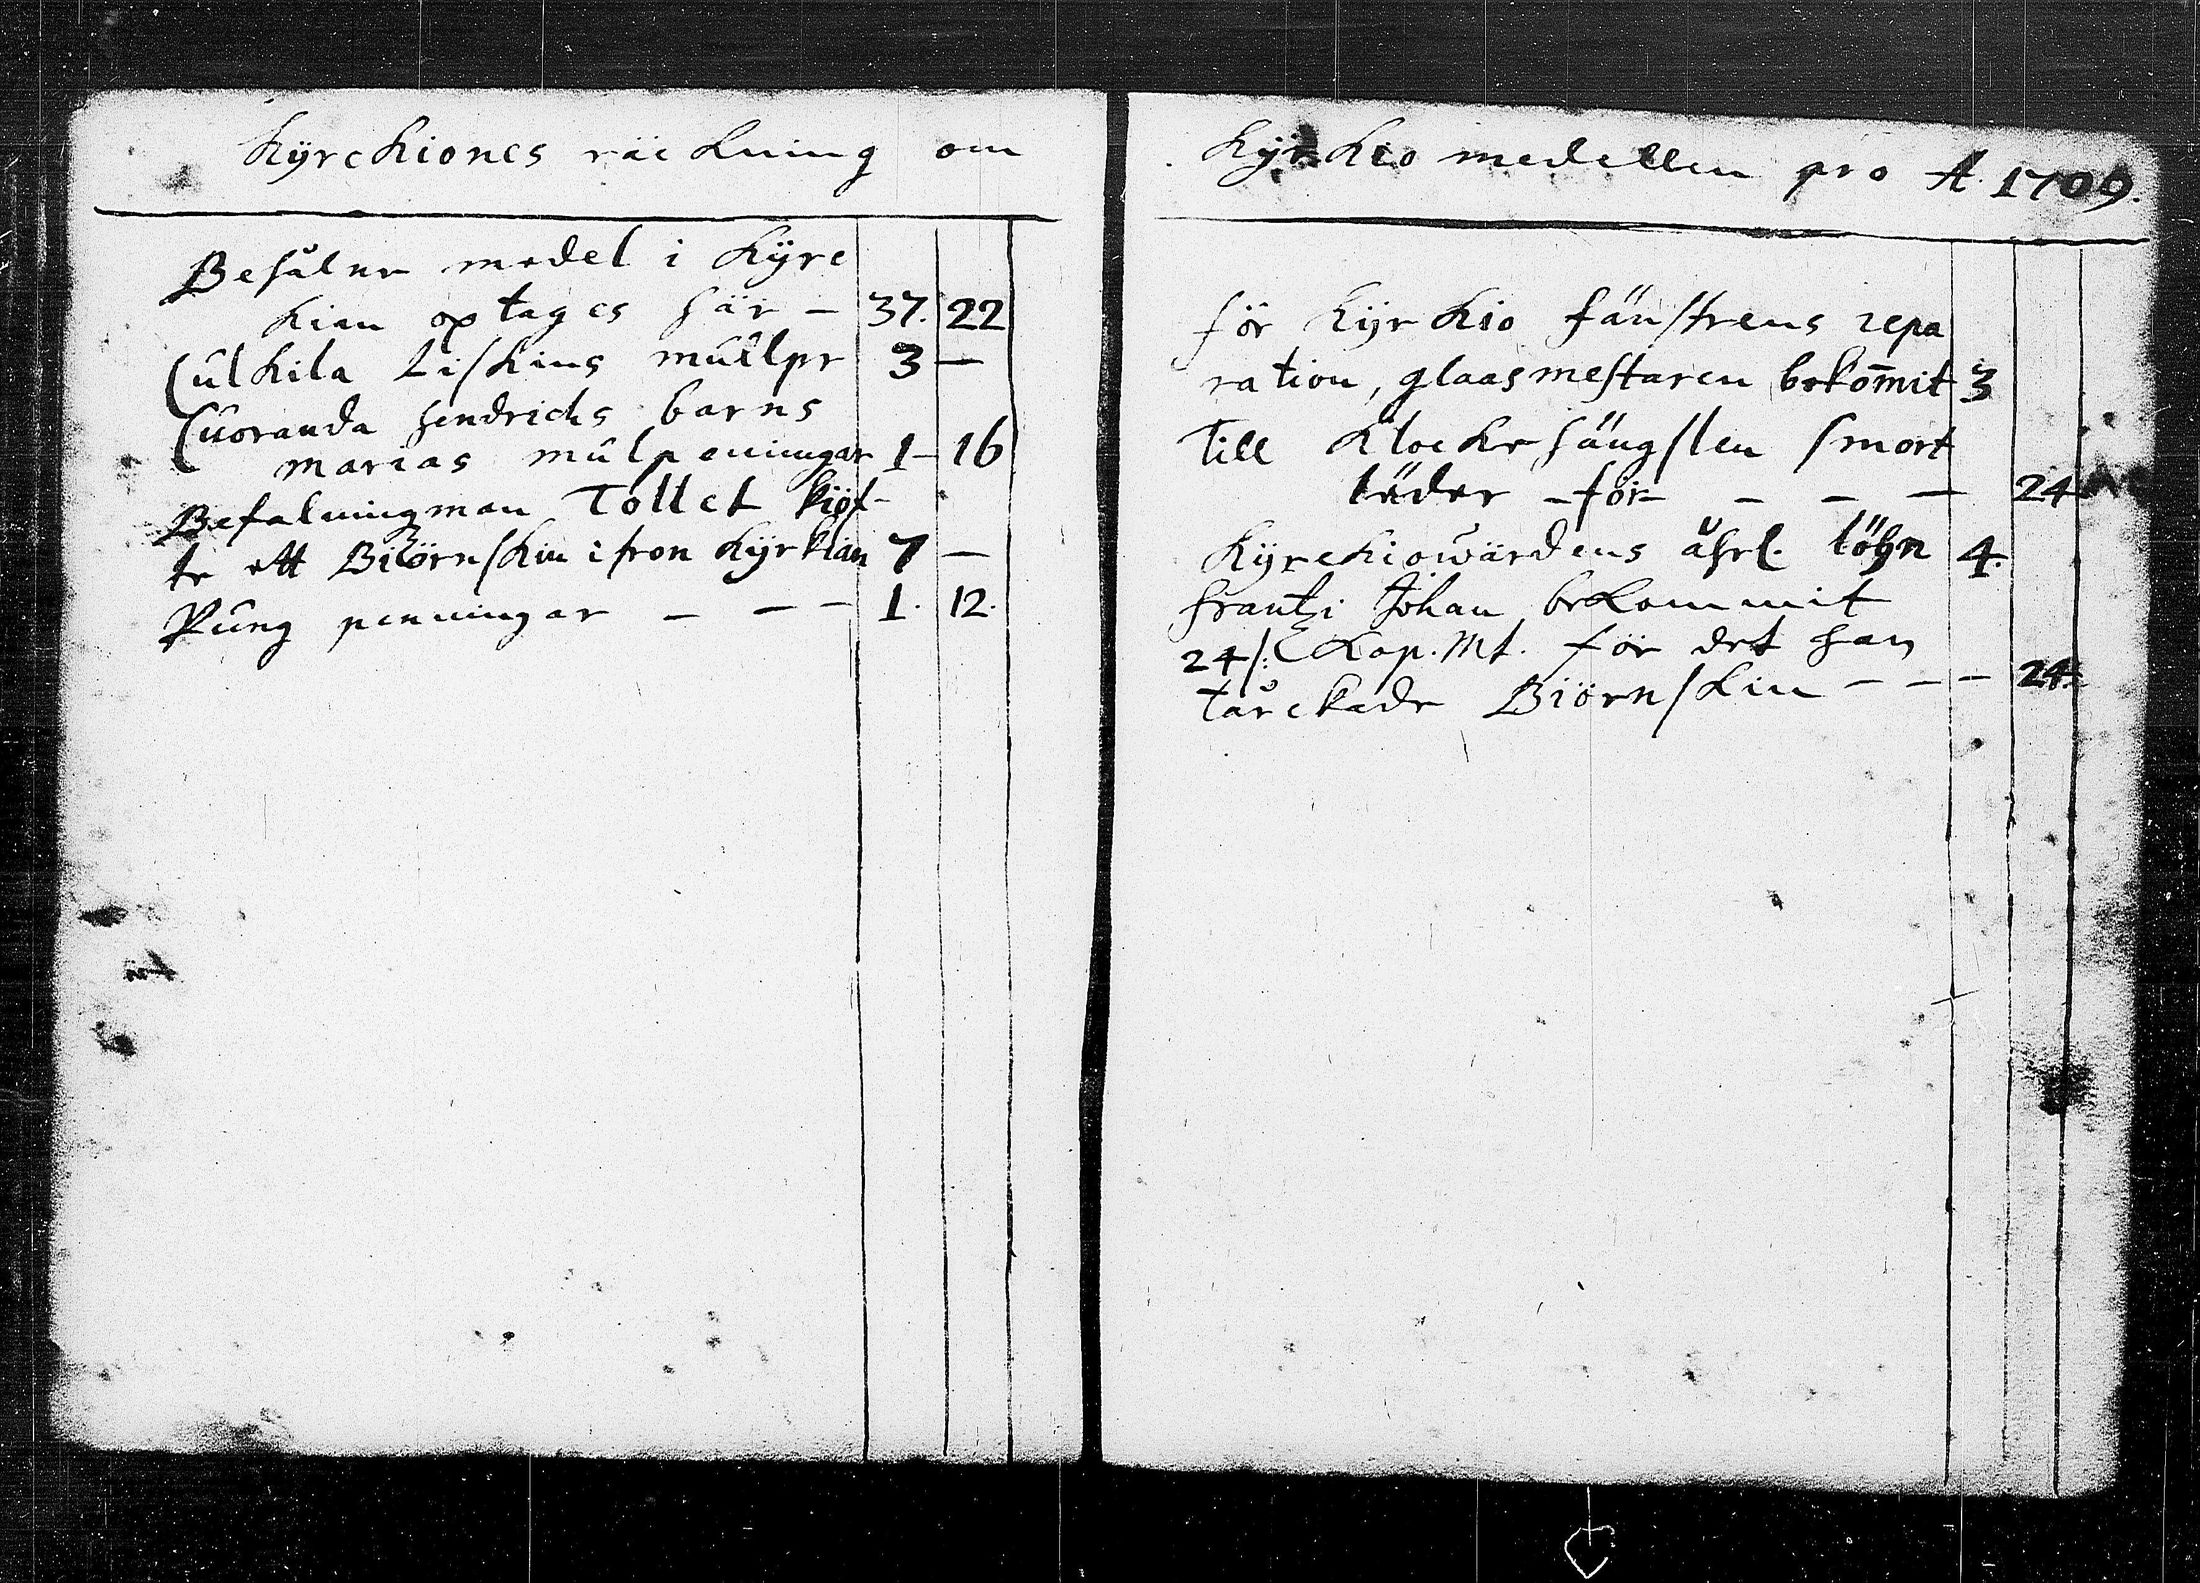 Kyrckiones räckning om
Behålne medel i Kyrc
kian optages här – 37. 22
Ulkila Liskins mullpr 3 –
Uoranda Hendrichs barns
marias mulpeningar 1 – 16
Befalningman Tollet kiöf-
te ett Biörnskin ifron Kyrkian 7 –
Pung penningar – – – 1. 12.
Kyrkio medellen pro A. 1709.
för kyrkio fänstrens repa
ration, glaasmestaren bekom̄it 3
Till Klocke hängslen smort
läder – för – – – 24
Kyrckiowärdens åhrl. löhn 4.
Frantzi Johan bekommit
24 /: Kop. Mt. för det han
tårckade Biörnskin – – – 24.